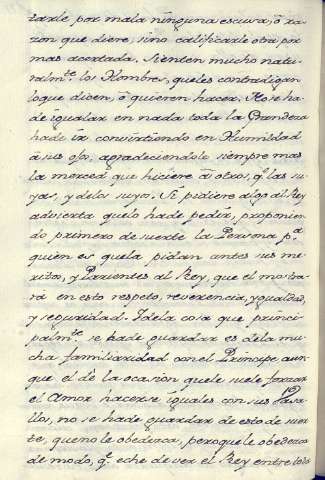 tarle por mala ninguna escusa, ò ra-
zon que diere, sino calificarle otra por
mas acertada. Sienten mucho natu-
ralm.te los Hombres, queles contradigan
loque dicen, ò quieren hacer. No se ha
de igualar en nada toda la Grandeza
hade ir convirtiendo en Humildad
à sus ojos, agradeciendole siempre mas
la merced que hiciere à otros, q.e las su-
yas, y delos suyo. Si pidiere algo al Rey
advierta quelo hade pedir, proponien-
do primero de suerte la Persona p.a
quien es quela pidan antes sus me-
ritos, y Parientes al Rey, que el mostra-
rà en esto respeto, reverencia, ygualdad,
y seguridad. Idela cosa que princi-
palm.te se hade guardar es dela mu-
cha familiaridad con el Principe aun-
que el dè la ocasion quele suele forzar
el Amor hacerse iguales con sus Vasa-
llos, no se hade guardar de esto de suer-
te, queno le obedezca, peroque le obedezca
de modo, q.e eche de ver el Rey entre todo